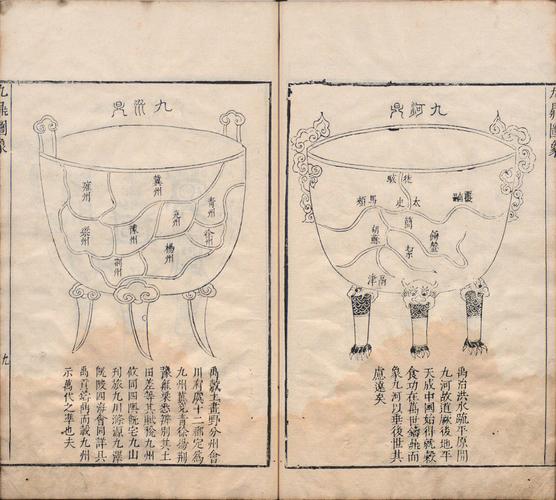 九鼎圖象
九河鼎
徒駭
太史
馬頰
覆鬴
胡蘇
簡
絜
鉤盤
鬲津
禹治洪水疏平原間
九河故道厥後地平
天成中國始得就穀
食功在萬世鑄鼎而
象九河以垂後世其
慮遠矣
九州鼎
冀州
雍州
青州
兗州
徐州
豫州
梁州
揚州
荊州
禹敷土畫野分州會
川有虞十二都定為
九州冀兗青徐揚荊
豫雍梁悉辨別其土
田差等其賦九州
攸同四隩既宅九山
刊旅九川滌源九澤
既陂四海會同詳具
禹貢鑄鼎而載九州
示萬代之準也夫
九鼎圖象
九